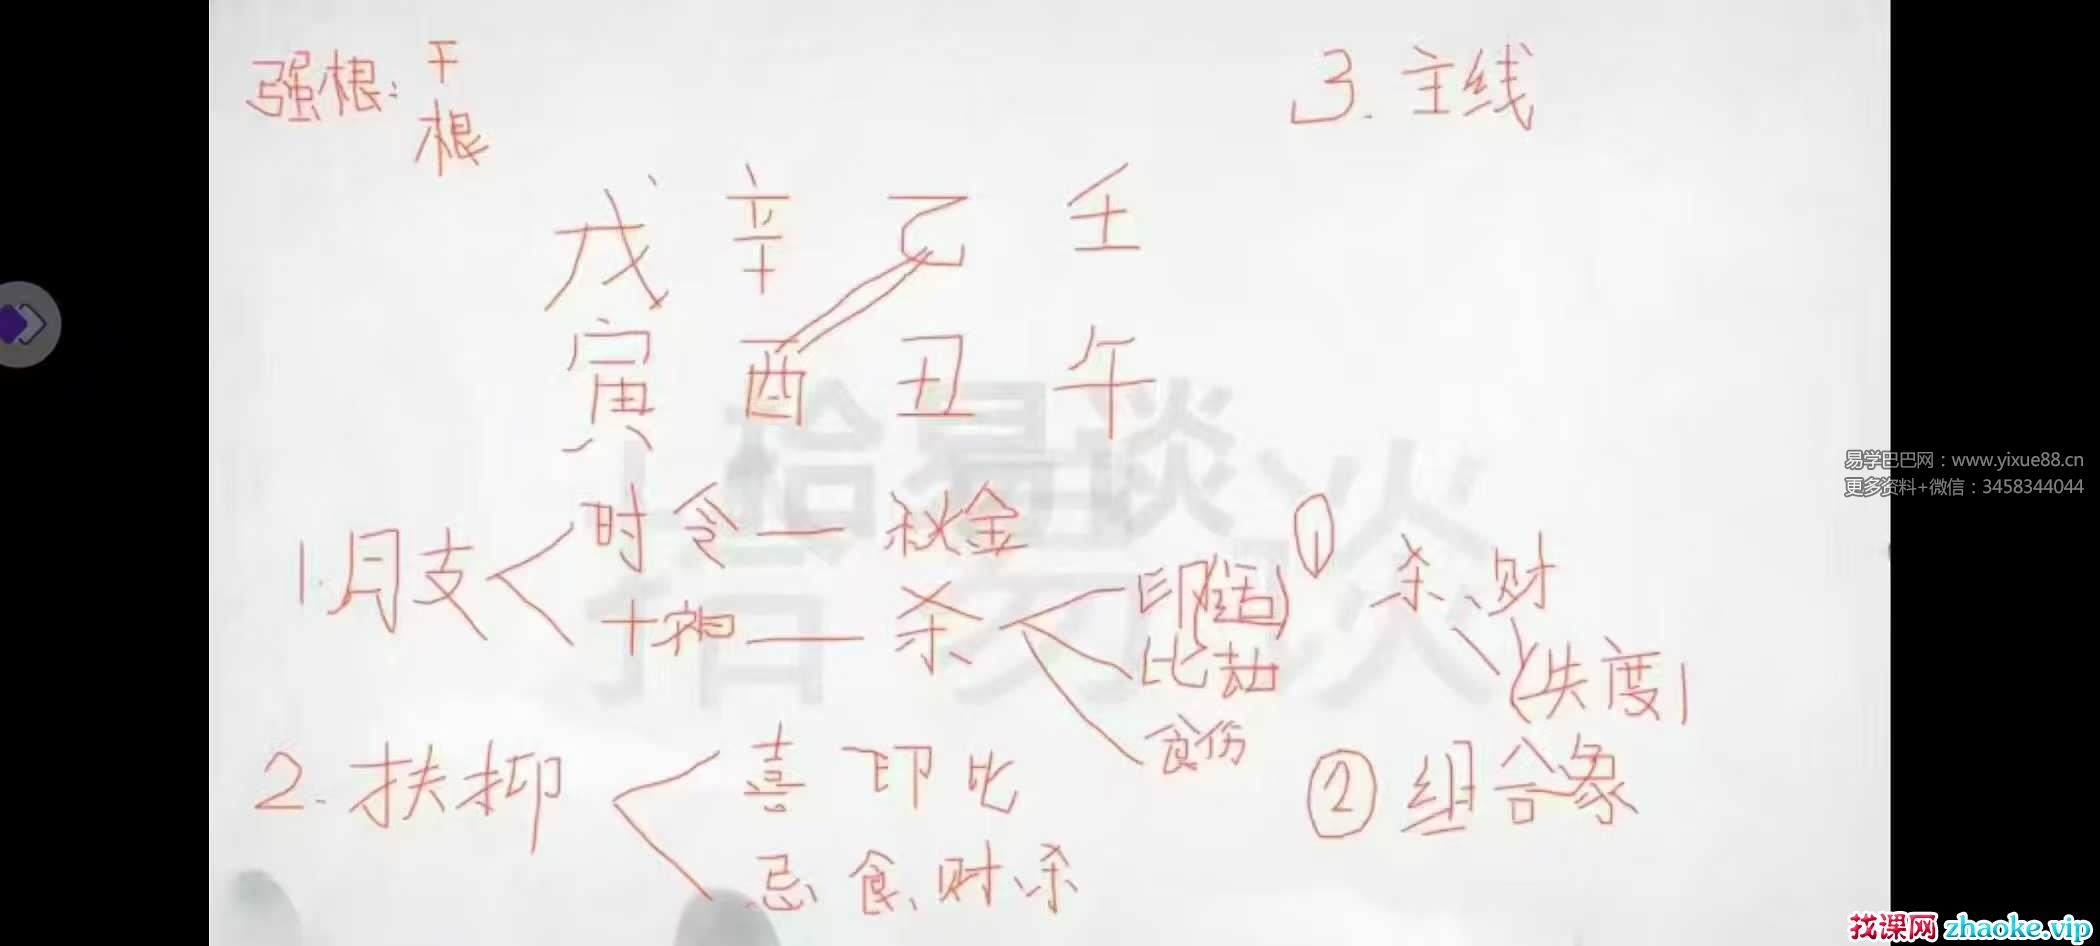 强根：干
根
3. 主线
戊 辛 乙 壬
寅 酉 丑 午
拾易谈
易学巴巴网：www.yixue88.cn
更多资料+微信：3458344044
1. 月支
时令 — 秋金
十神 — 杀
印(活)
比劫
食伤
① 杀、财
(失度)
② 组合象
2. 扶抑
喜 印 比
忌 食、财、杀
找课网 zhaoke.vip